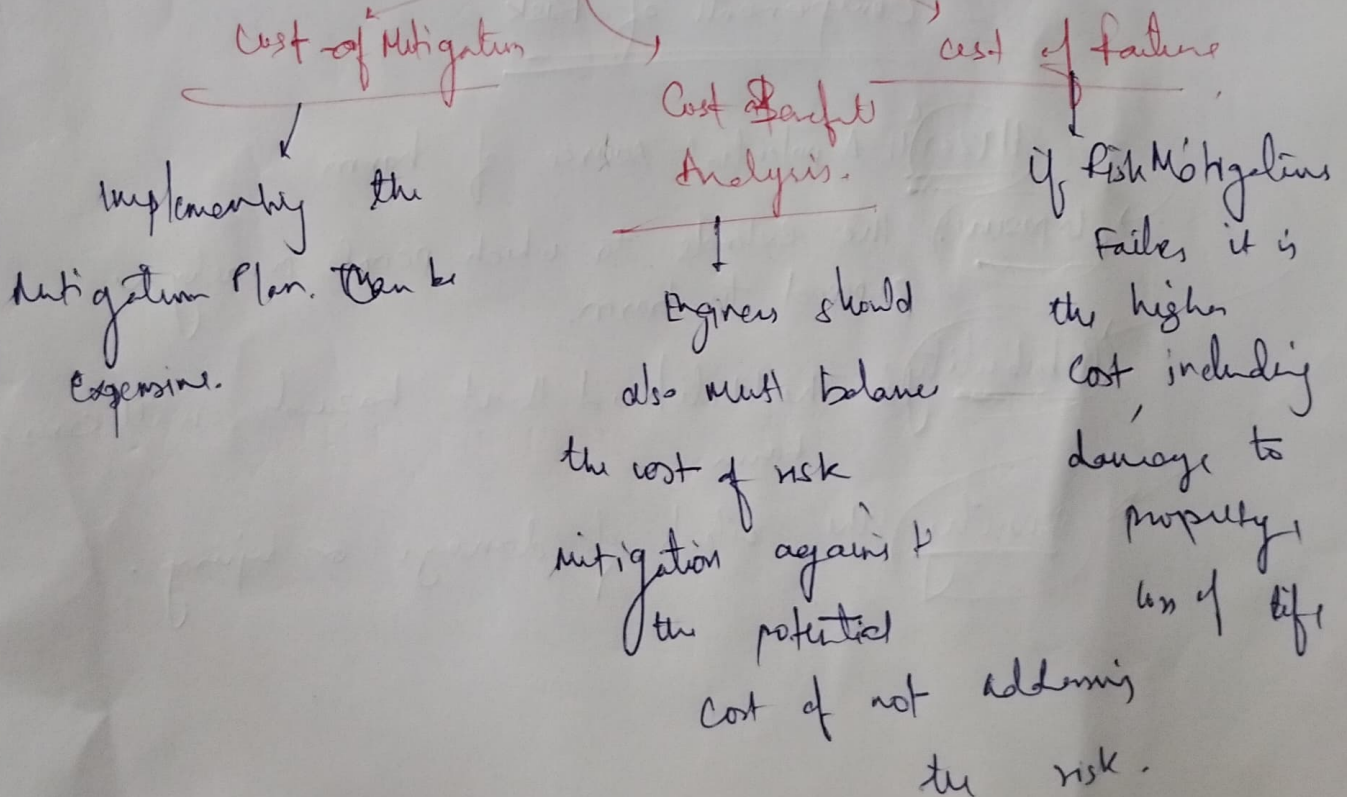 Cost of Mitigation
Implementing the
Mitigation Plan. Can be
Expensive.
Cost Benefit
Analysis.
Engineers should
also must balance
the cost of risk
mitigation against
the potential
cost of not addressing
the risk.
cost of failure
if Risk Mitigations
Failes it is
the higher
cost including
damage to
property,
loss of life